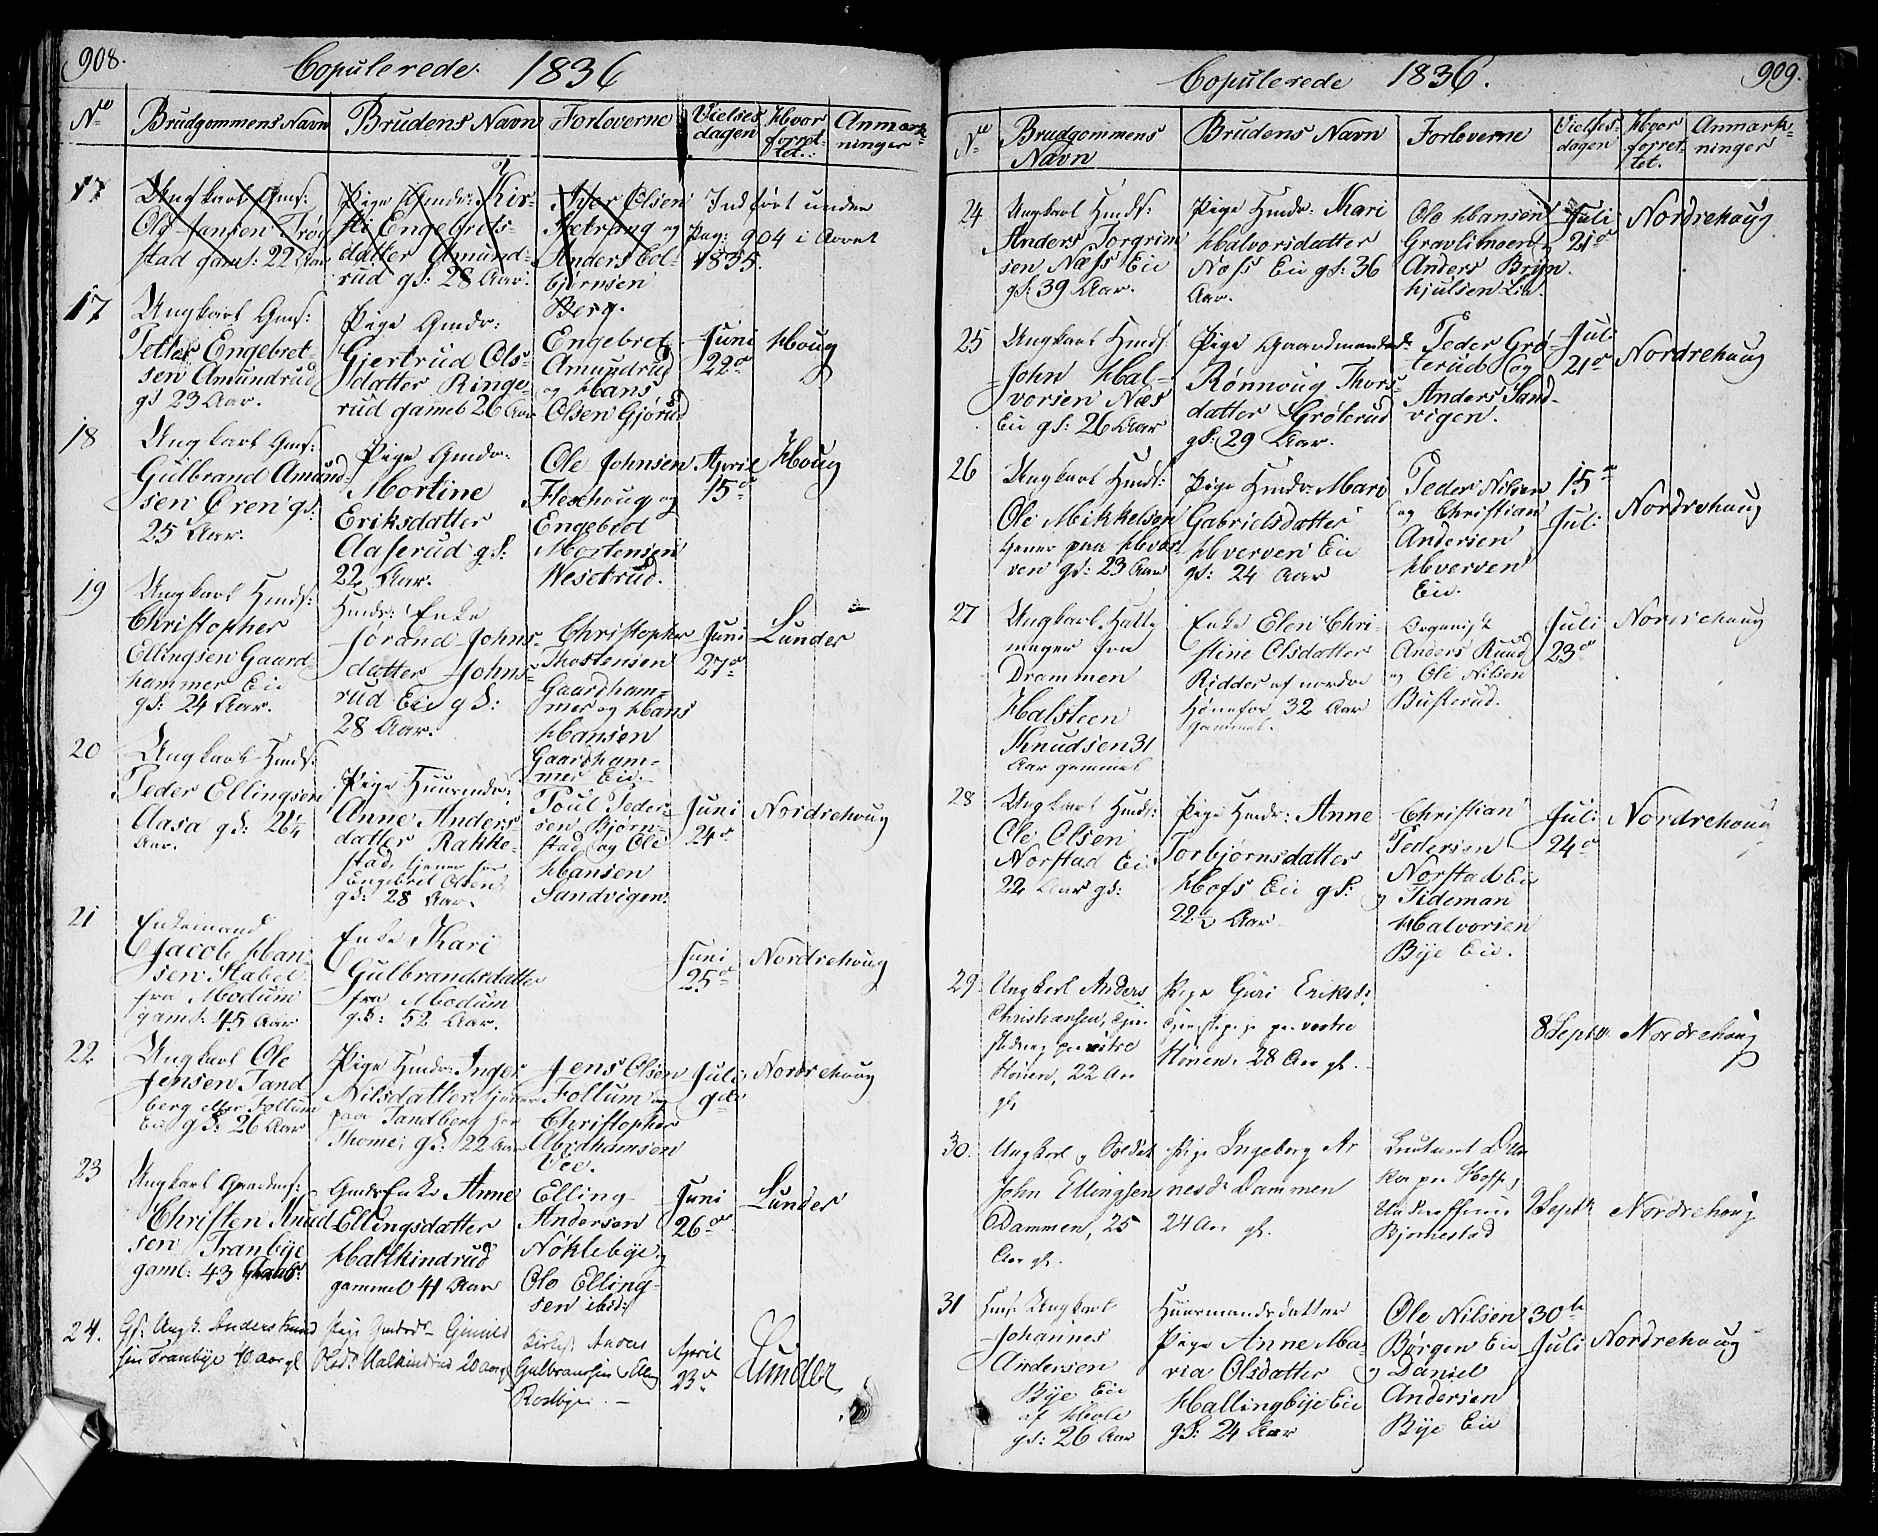 908.
Copulerede 1836
No
Brudgommens Navn
Brudens Navn
Forloverne
Vielses
dagen
Hvor
forret-
tet.
Anmærk-
ninger
17
Ungkarl Gms:
Ole Jansen Trøg-
stad gaml: 22 Aar
Pige Gmdr: Kir-
sti Engebrets-
datter Amund-
rud gs: 28 Aar.
Iver Olsen
og
Anders Col-
bjørnsen
Berg.
Indført under
Pag: 904 i Aaret
1835.
17
Ungkarl Gms:
Petter Engebret-
sen Amundrud
gs 23 Aar.
Pige Gmdr:
Gjertrud Ols-
datter Ringe-
rud gamel 26 Aar
Engebret
Amundrud
og Hans
Olsen Gjørud
Juni
22de
Houg
18
Ungkarl Gms:
Gulbrand Amund-
sen Ören gs:
25 Aar.
Pige Gmdr:
Mortine
Eriksdatter
Aaserud gs:
22 Aar.
Ole Johnsen
Fleschoug og
Engebret
Mortensen
Wesetrud.
April
15de
Houg
19
Ungkarl Hmds:
Christopher
Ellingsen Gaard-
hammer Eie
gs: 24 Aar.
Hmdr: Enke
Jorand Johns-
datter Johns-
rud Eie gs:
28 Aar.
Christopher
Thostensen
Gaardham-
mer og Hans
Hansen
Gaardham-
mer Eie.
Juni
27de
Lunder
20
Ungkarl Hmds:
Peder Ellingsen
Aasa gs: 26¼
Aar.
Pige Huusmdr:
Anne Anders-
datter Rakke-
stad, tjener hos
Engebret Olsen
gs: 28 Aar.
Poul Peder-
sen Bjørn-
stad og Ole
Hansen
Sandvigen.
Juni
24de
Nordrehoug
21
Enkemand
Jacob Han-
sen Stabel
fra Modum
gaml: 45 Aar
Enke Kari
Gulbrandsdatter
fra Modum
gs: 52 Aar.
Juni
25de
Nordrehoug
22
Ungkarl Ole
Jensen Tand-
berg eller Follum
Eie gs: 26 Aar
Pige Hmdr: Inger
Nilsdatter tjener
paa Tandberg hos
Thome, gs: 22 Aar
Jens Olsen
Follum og
Christopher
Abrahamsen
Vee.
Juli
9de
Nordrehoug
23
Ungkarl Gaardms:
Christen Knud-
sen Tranbye
gaml: 43
Gmds Enke Anne
Ellingsdatter
Halkindrud
gammel 41 Aar
Elling
Andersen
Nøklebye
Ole Elling-
sen ibid:
Juni
26de
Lunder
24.
Gs: Ungk. Anders Knud
sen Tranbye 40 aar gl
Pige Gmdsdr Gunild
Olsdr Halkindrud 20 aar gl
Kirkes:
Gulbransen
Roalbye
April
23de
Lunder
909.
Copulerede 1836.
No
Brudgommens
Navn
Brudens Navn
Forloverne
Vielses-
dagen
Hvor
forret-
tet.
Anmærk-
ninger
24
Ungkarl Hmds:
Anders Torgrim
sen Næss Eie
gs: 39 Aar.
Pige Hmdr: Mari
Halvorsdatter
Næss Eie gs: 36
Aar.
Ole Hansen
Gravlimoen
Anders Bryn
hjulsen Lia.
Juli
21de
Nordrehoug
25
Ungkarl Hmds
John Hal-
vorsen Næs
Eie gs: 26 Aar
Pige Gaardmandsd:
Rønnoug Thors-
datter Grøterud
gs: 29 Aar.
Peder Grø-
terud og
Anders Sand-
vigen.
Juli
21de
Nordrehoug
26
Ungkarl Hmds:
Ole Mikkelsen
tjener paa Hver-
ven gs: 23 Aar
Pige Hmdr: Mari
Gabrielsdatter
Hverven Eie
gs: 24 Aar
Peder Nilsen
og Christian
Andersen
Hverven
Eie.
15de
Juli
Nordrehoug
27
Ungkarl Hatte
mager fra
Drammen
Halsteen
Knudsen 31
Aar gammel
Enke Elen Chri-
stine Olsdatter
Ridder af nordre
Hønefos 32 Aar
gammel.
Organist
Anders Ruud
og Ole Nilsen
Busterud.
Juli
23de
Nordrehoug
28
Ungkarl Hmds:
Ole Olsen
Norstad Eie
22 Aar gs:
Pige Hmdr: Anne
Torbjørnsdatter
Hofs Eie gs:
22½ Aar
Christian
Pedersen
Norstad Eie
og Tideman
Halvorsen
Bye Eie.
Juli
24de
Nordrehoug
29
Ungkarl Anders
Christiansen, Tjen-
paa vestre
Honen, 22 Aar
gl.
Pige Guri Eriksd:
Tjenestepige paa vestre
Honen, 28 Aar gl.
8 Septbr
Nordrehoug
30.
Ungkarl og Soldat
John Ellingsen
Dammen, 25
Aar gl.
Pige Ingeborg Ar
nesdr Dammen
24 Aar gl.
Leutenant
paa Hoff,
Underofficeer
Bjornestad
9 Septbr
Nordrehoug
31
Hms: Ungkarl
Johannes
Andersen
Bye Eie
af Hole
gs: 26 Aar
Huusmandsdatter
Pige Anne Ma-
ria Olsdatter
Hallingbye Eie
gs: 24 Aar
Ole Nilsen
Børgen Eie
og Daniel
Andersen
Bye Eie
30te
Juli
Nordrehoug